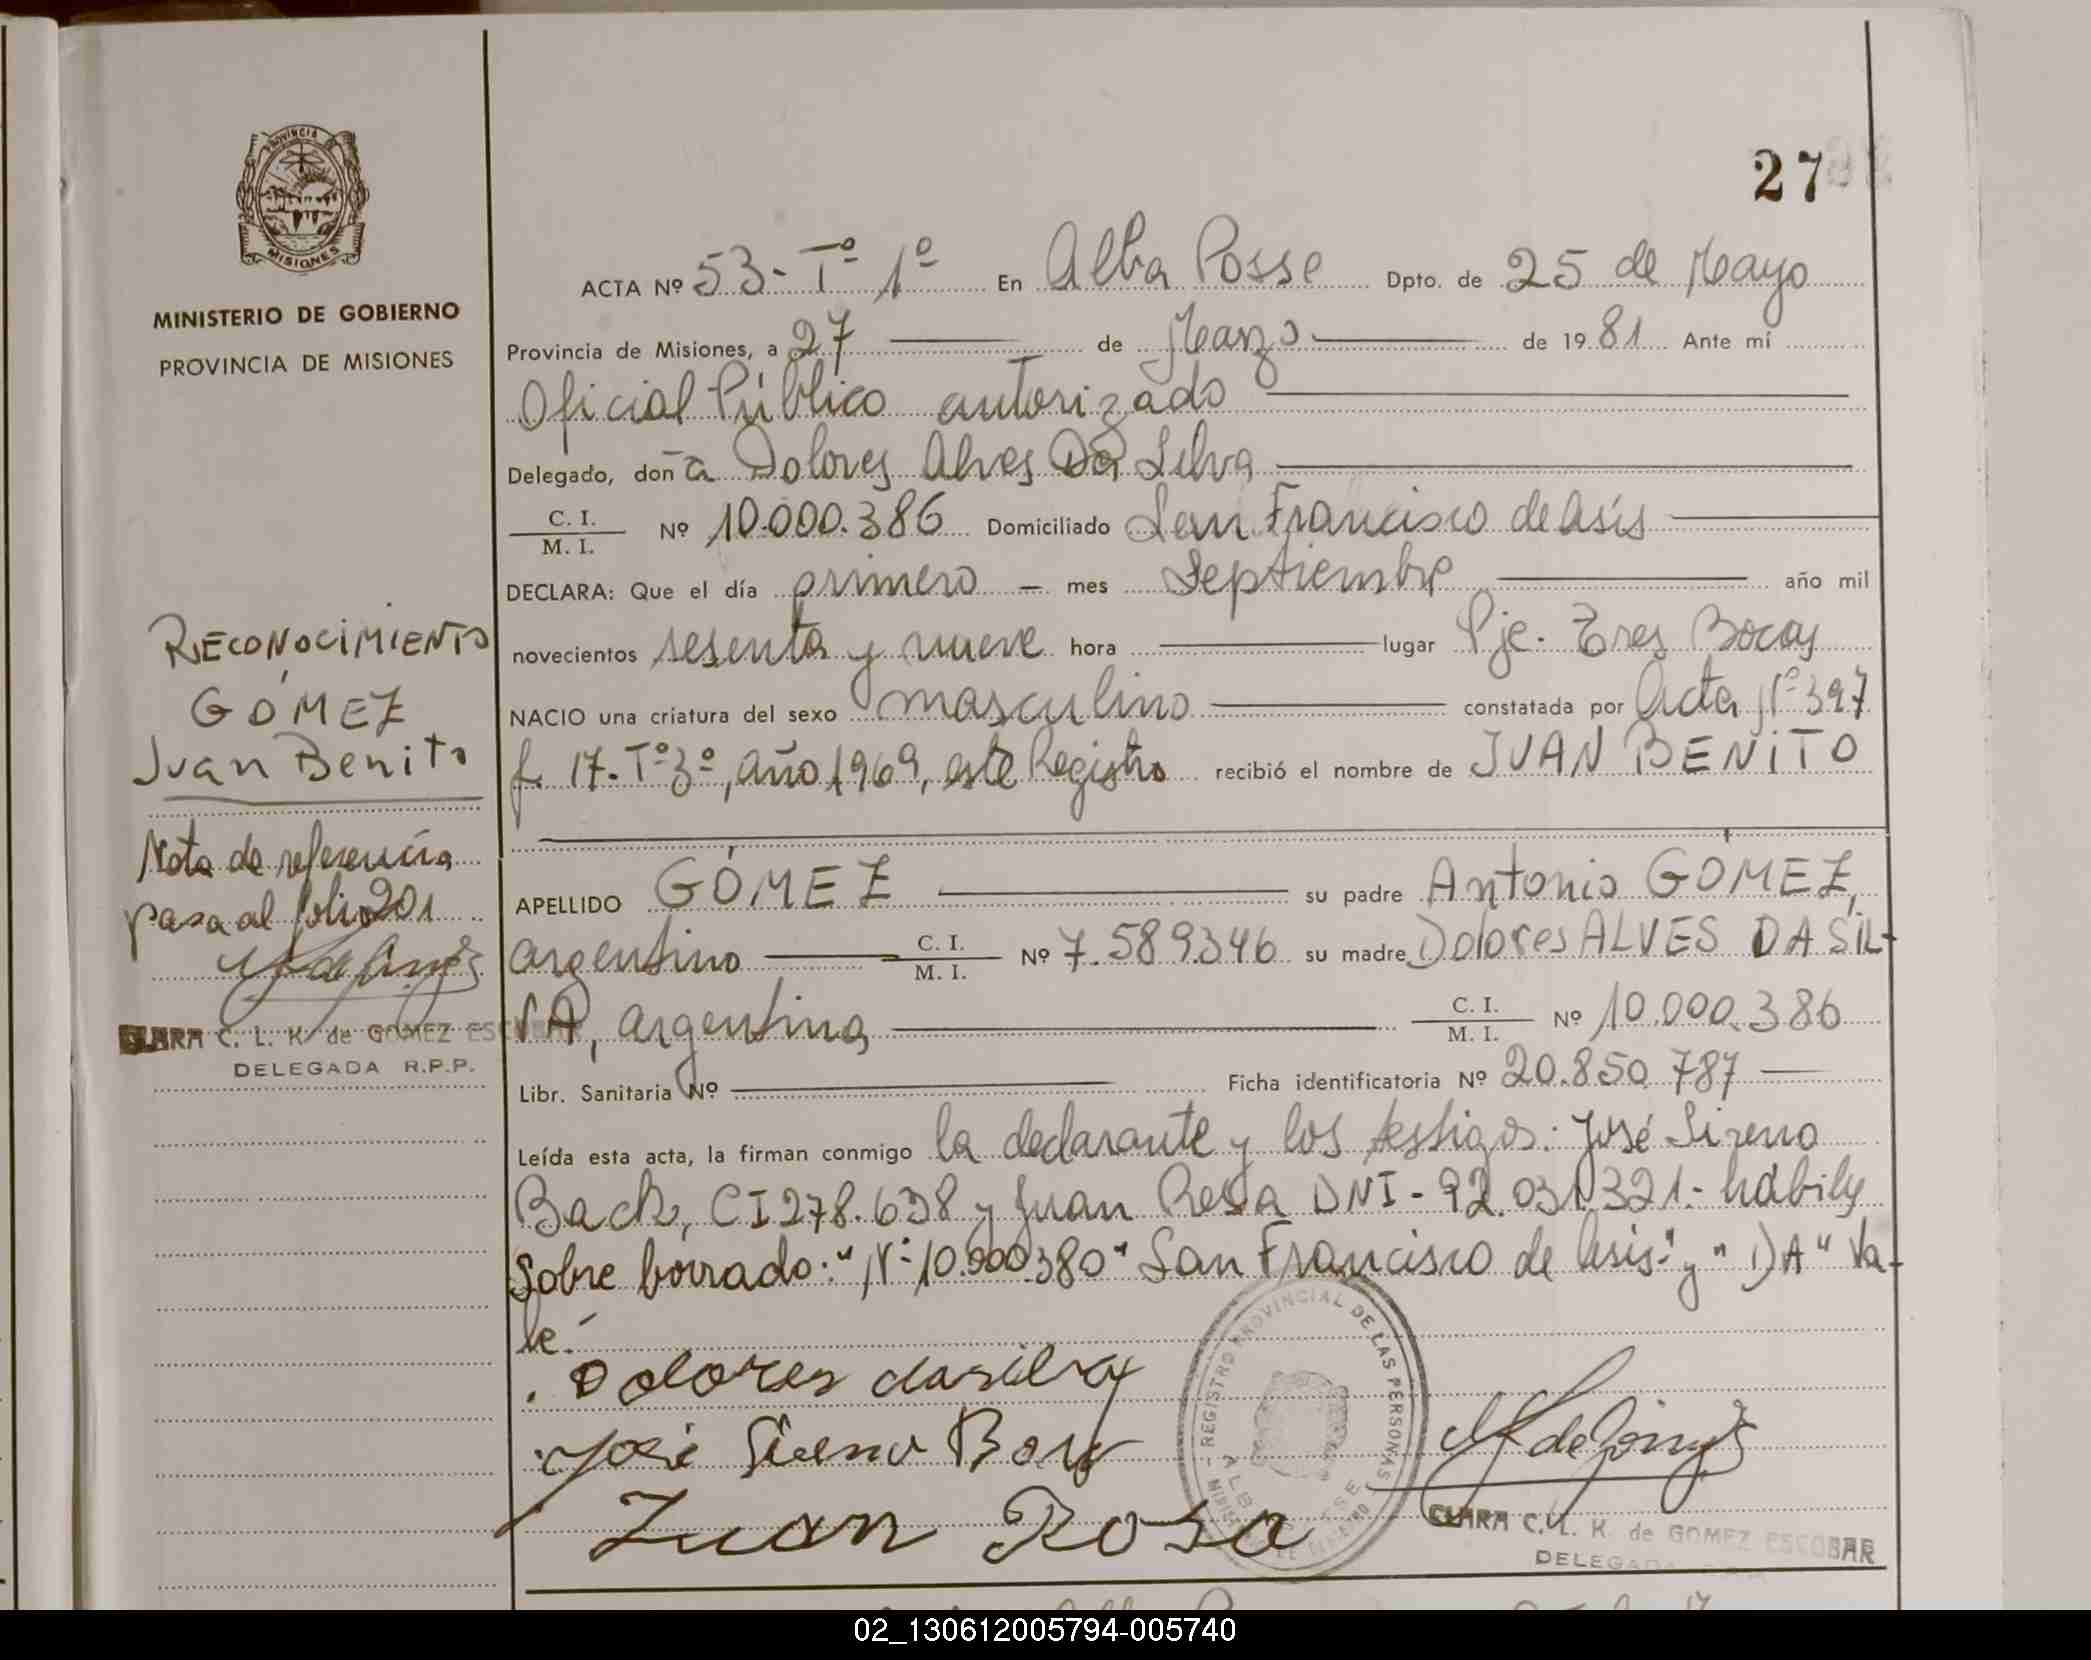 27
PROVINCIA
MISIONES
MINISTERIO DE GOBIERNO
PROVINCIA DE MISIONES
ACTA Nº 53-Tº 1º En Alba Posse Dpto. de 25 de Mayo
Provincia de Misiones, a 27 de Marzo de 1981 Ante mí
Oficial Público autorizado
Delegado, don a Dolores Alves Da Silva
C. I.
M. I. Nº 10.000.386 Domiciliado San Francisco de Asís
DECLARA: Que el día primero - mes Septiembre año mil
novecientos sesenta y nueve hora lugar Pje. Tres Bocas
NACIO una criatura del sexo masculino constatada por Acta Nº 397
f. 17-Tº3º, año 1969, este Registro recibió el nombre de JUAN BENITO
APELLIDO GÓMEZ su padre Antonio GOMEZ,
argentino C. I. M. I. Nº 7.589.346 su madre Dolores ALVES DA SIL-
VA, argentina C. I. M. I. Nº 10.000.386
Libr. Sanitaria Nº Ficha identificatoria Nº 20.850.787
Leída esta acta, la firman conmigo la declarante y los testigos: José Sireno
Back, CI 278.638 y Juan Rosa DNI-92.031.321.- hábiles
Sobre borrado: "Nº 10.000.380" San Francisco de Asis" y "DA" Va-
le.-
Dolores dasilva
José Sireno
Juan Rosa
REGISTRO PROVINCIAL DE LAS PERSONAS
CLARA C. L. K. de GOMEZ ESCOBAR
DELEGADA
RECONOCIMIENTO
GÓMEZ
Juan Benito
Nota de referencia
pasa al folio 201
CLARA C. L. K. de GOMEZ ESCOBAR
DELEGADA R.P.P.
02_130612005794-005740